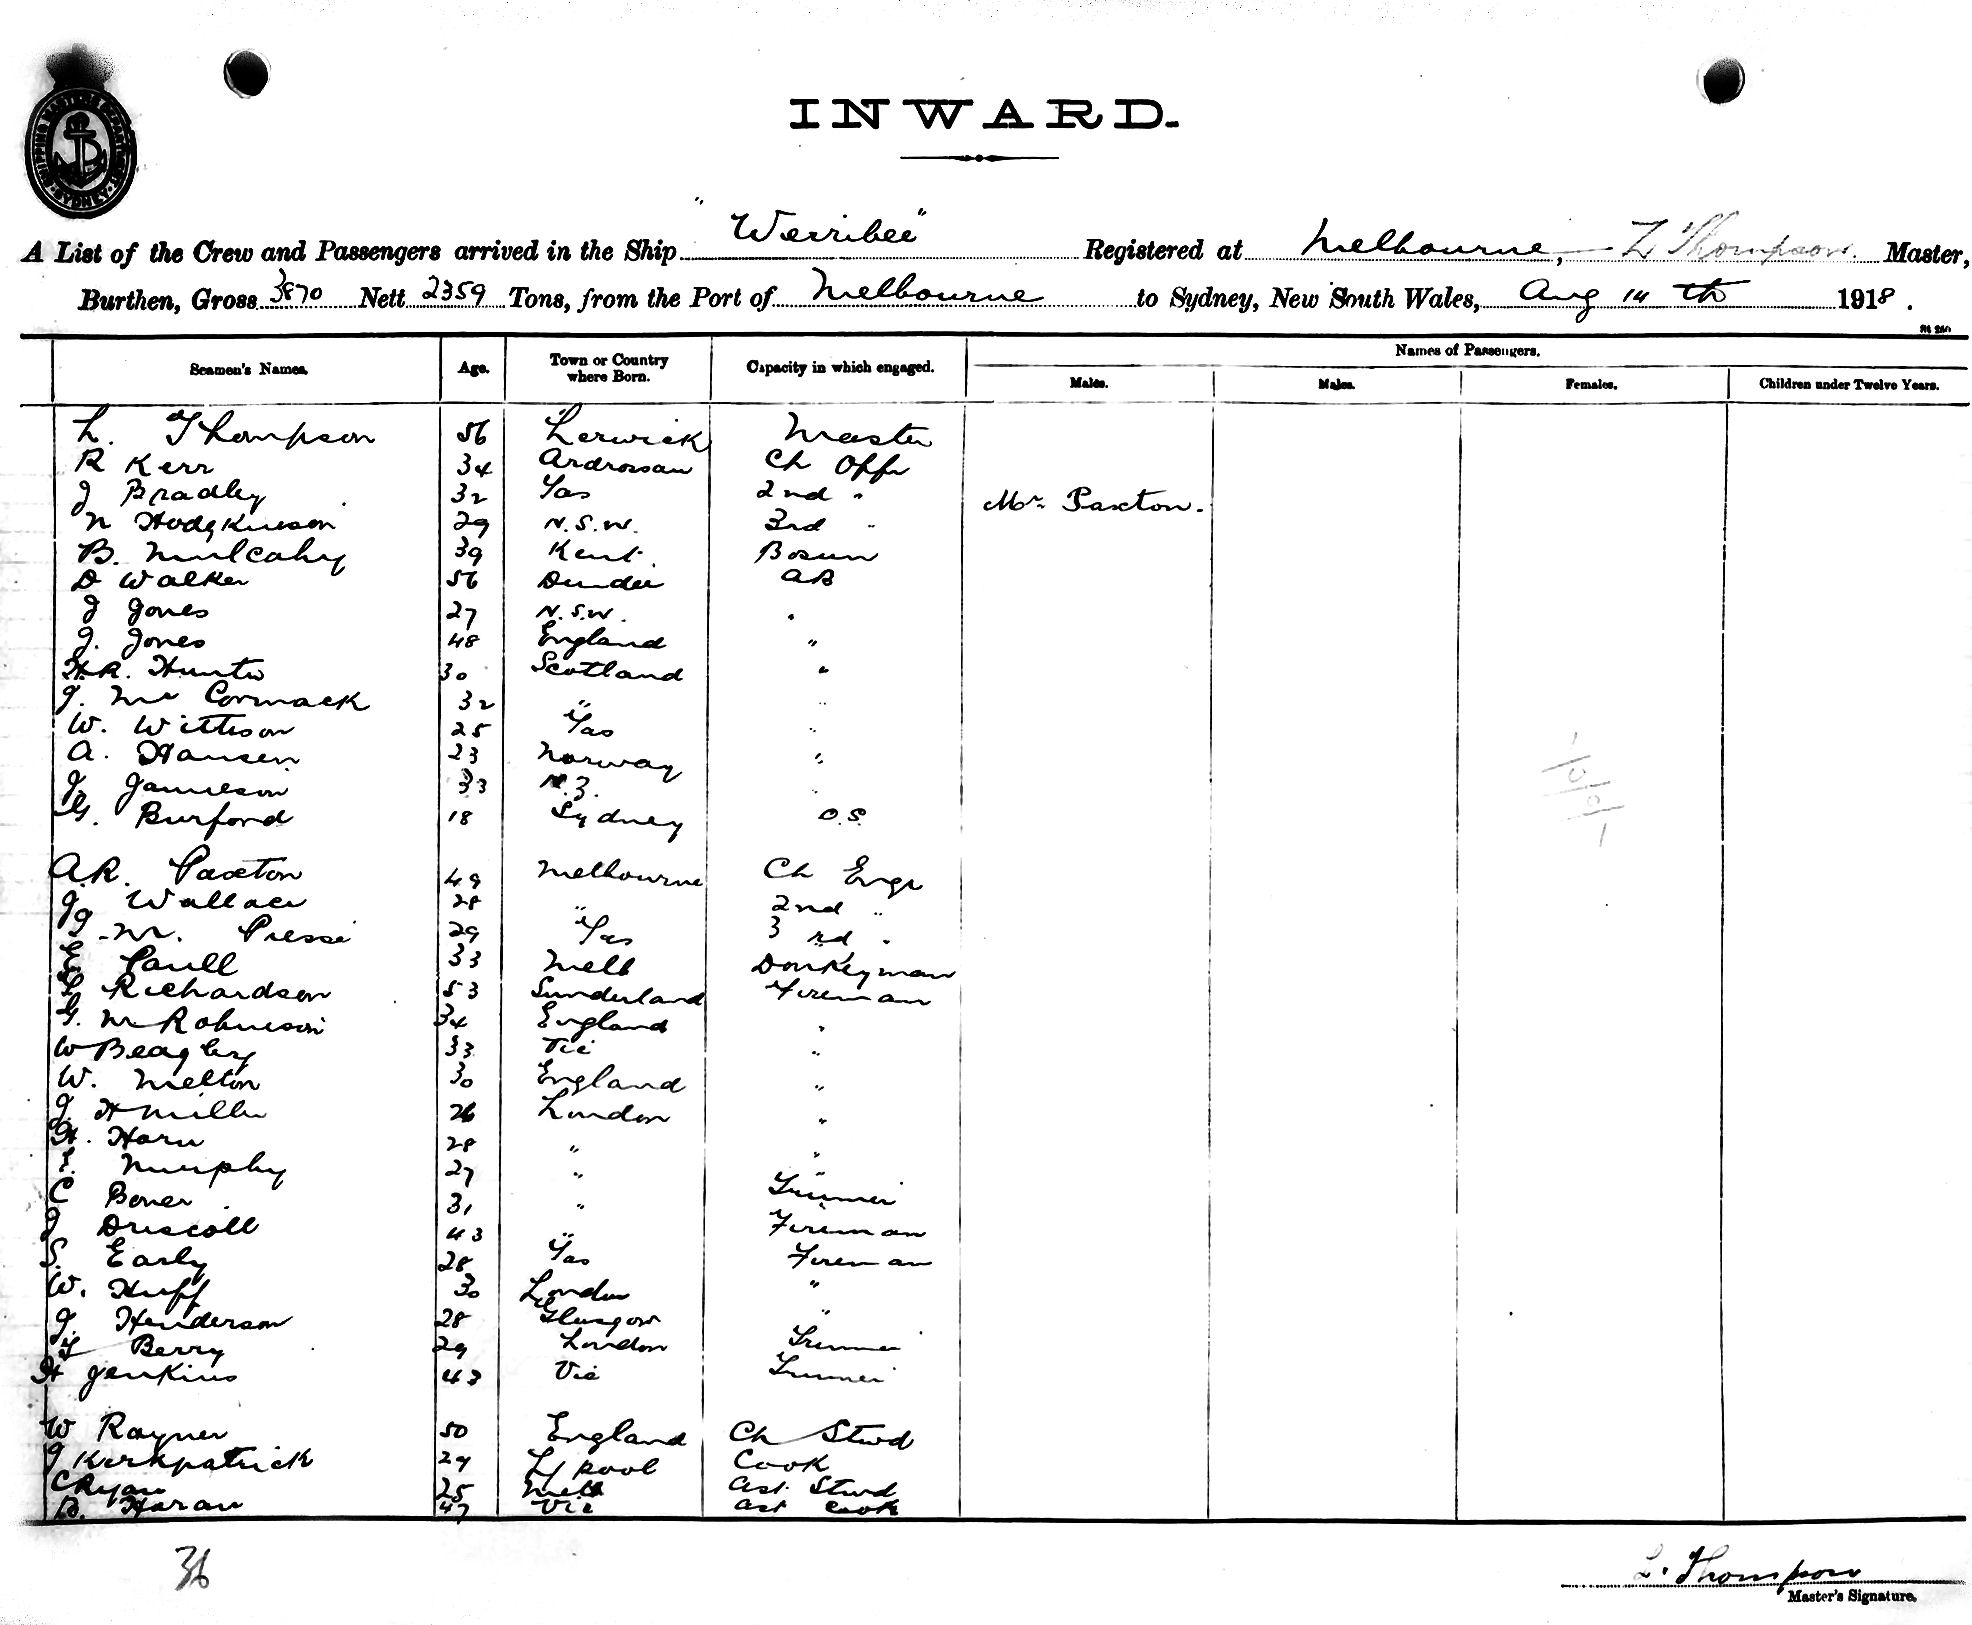 SHIPPING MASTER'S DEPARTMENT SYDNEY
INWARD.
A List of the Crew and Passengers arrived in the Ship "Werribee" Registered at Melbourne, L Thompson. Master,
Burthen, Gross 3870 Nett 2359 Tons, from the Port of Melbourne to Sydney, New South Wales, Aug 14 th 1918.
Seamen's Names. Age. Town or Country where Born. Capacity in which engaged. Names of Passengers.
Males. Males. Females. Children under Twelve Years.
L. Thompson 56 Lerwick Master
R Kerr 34 Ardrossan Ch Offr
J Bradley 32 Tas 2nd "
Mr. Paxton.
N Hodgkinson 29 N.S.W. 3rd "
B. Mulcahy 39 Kent. Bosun
D Walker 56 Dundee AB
J Jones 27 N.S.W. "
J. Jones 48 England "
H.R. Hunter 30 Scotland "
J. Mc Cormack 32 " "
W. Wittison 25 Tas "
A. Hansen 23 Norway "
J. Jamieson 33 N.Z. "
G. Burford 18 Sydney O.S.
A.R. Paxton 49 Melbourne Ch Engr
J. Wallace 28 " 2nd "
J. M. Presse 29 Tas 3 rd "
Paull 33 Melb Donkeyman
Richardson 53 Sunderland Fireman
G. M Robinson 34 England "
W Beagley 33 Vic "
W. Melton 30 England "
J. H Miller 26 London "
H. Horn 28 " "
Murphy 27 " "
C Boner 31 " Trimmer
J Driscoll 43 " Fireman
S. Early 28 Tas Fireman
W. Huff 30 London "
J. Henderson 28 Glasgow "
T Berry 29 London Trimmer
H Jenkins 43 Vic Trimmer
W Rayner 50 England Ch Stwd
J Kirkpatrick 29 L/pool Cook
C Ryan 25 Melb Ast. Stwd
B. Horan 47 Vic Ast Cook
36
L. Thompson
Master's Signature.